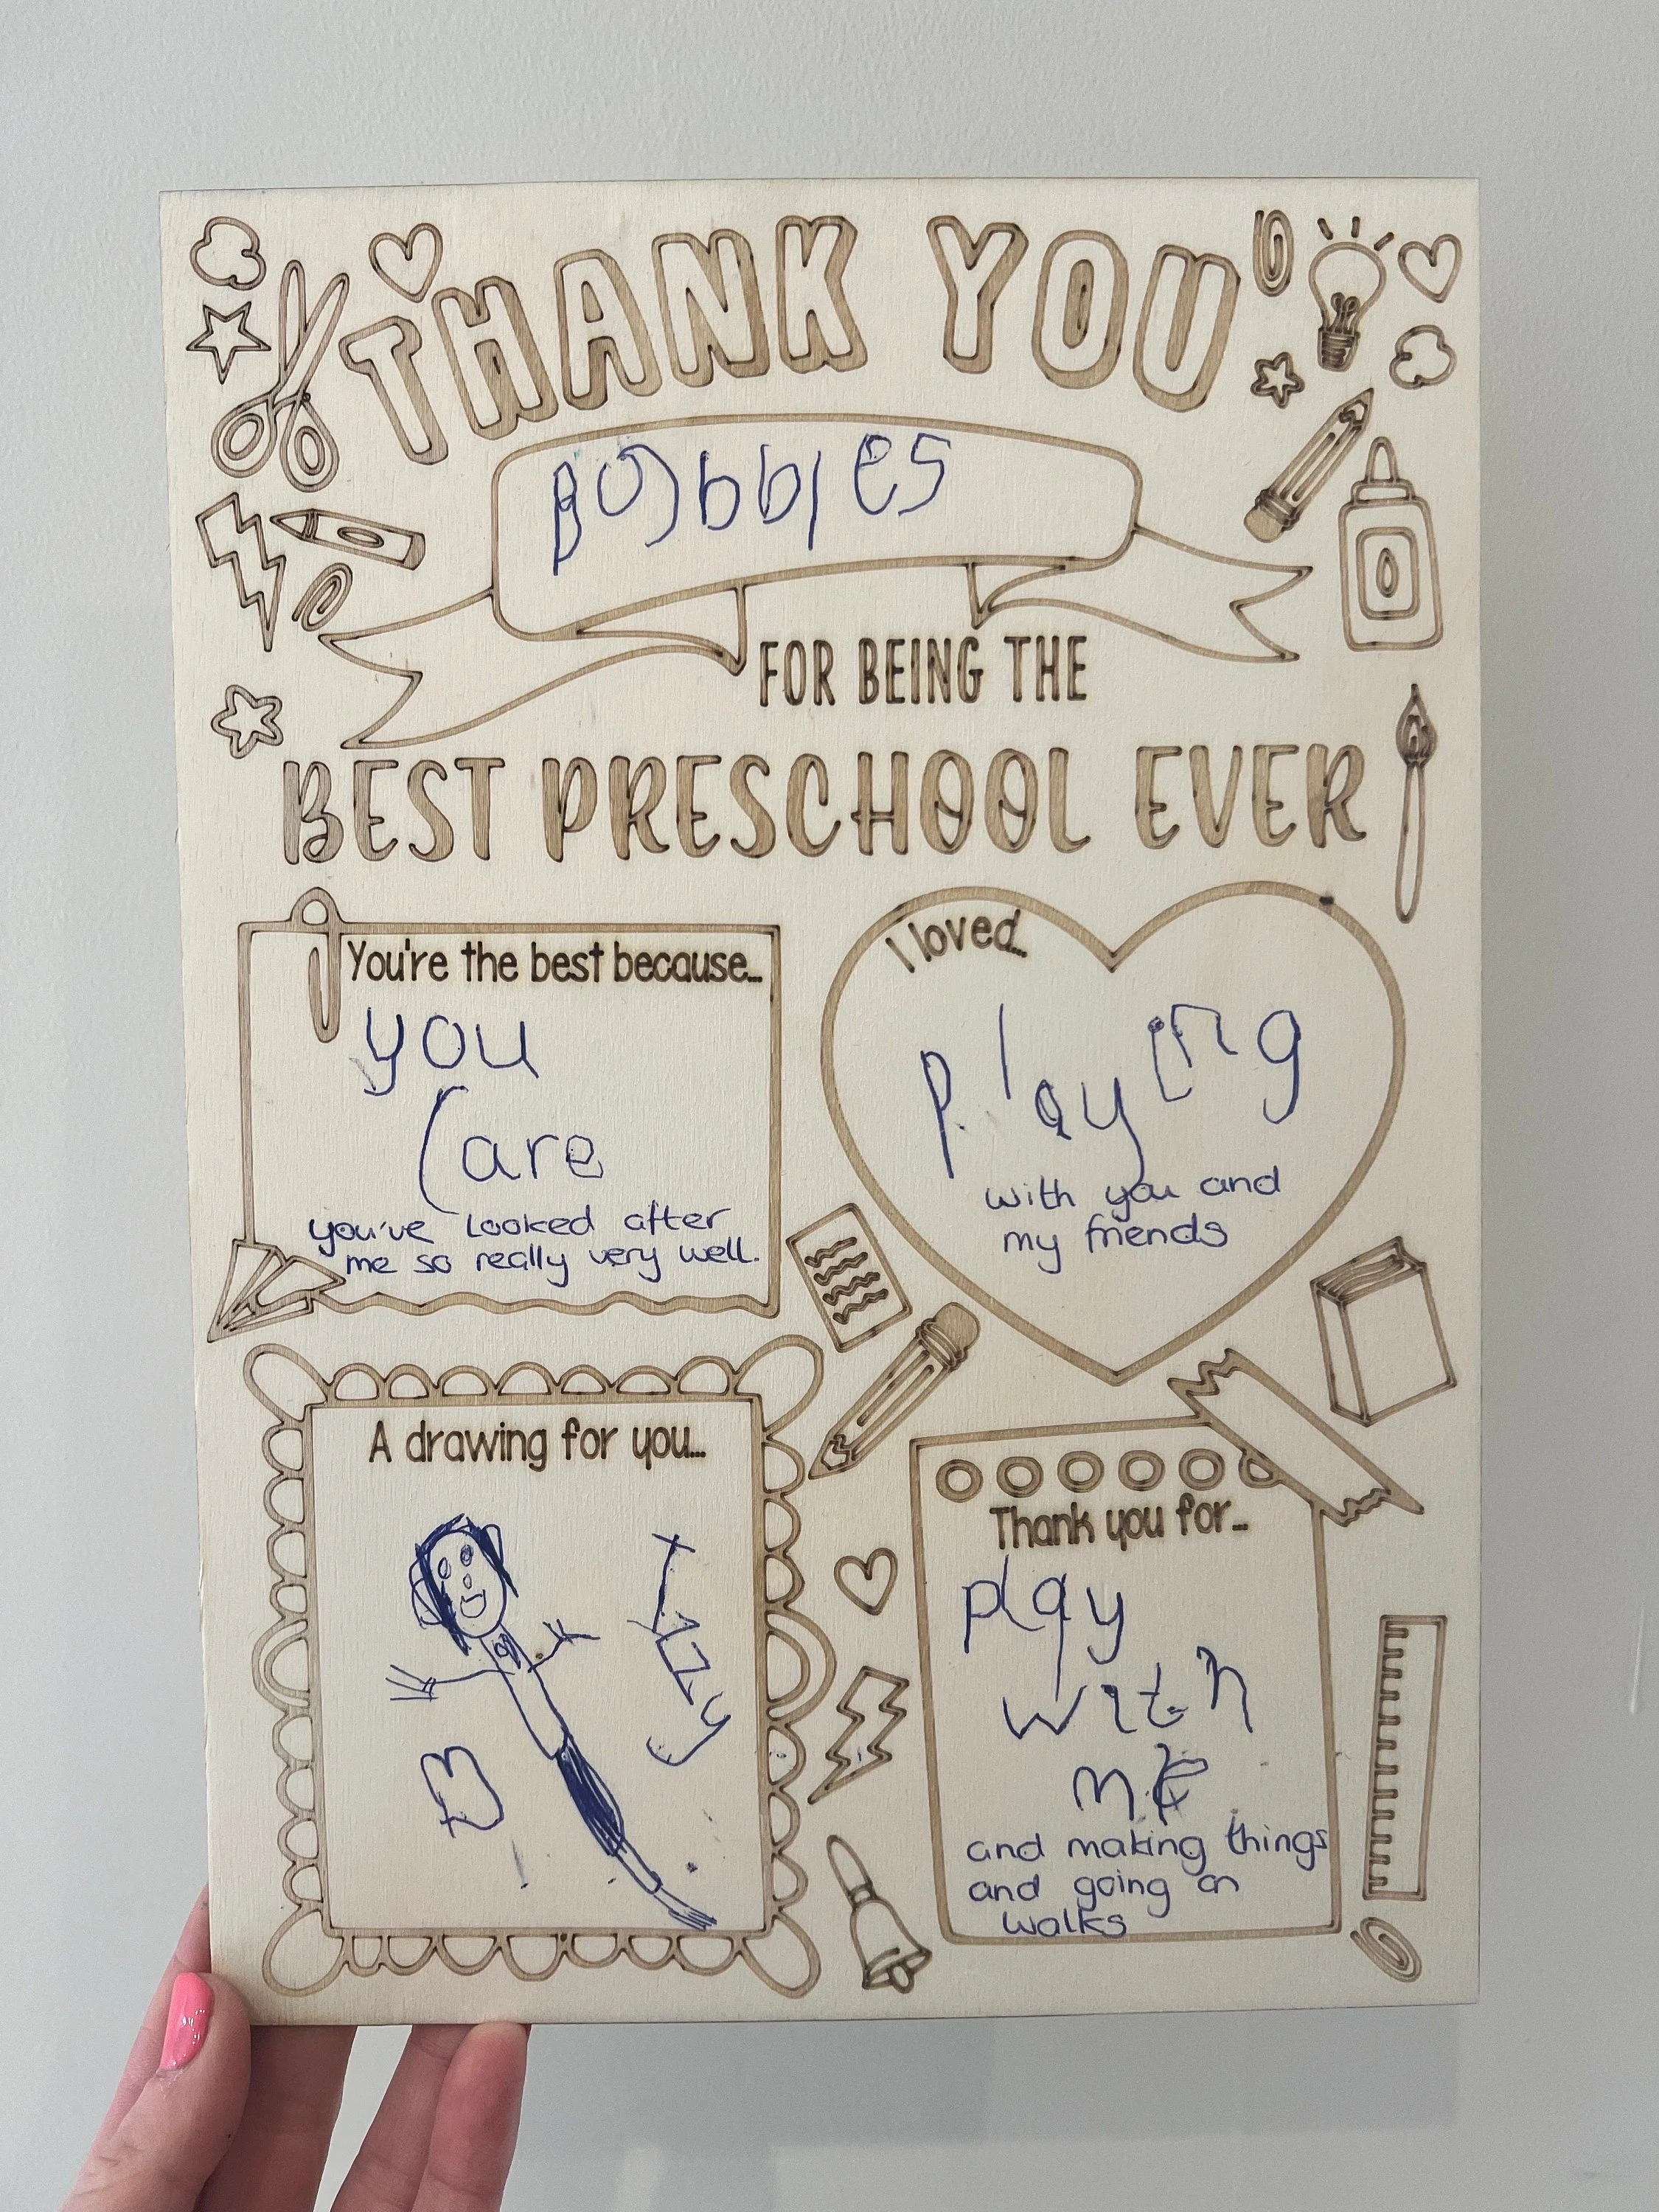 THANK YOU
Bubbles
FOR BEING THE
BEST PRESCHOOL EVER
You're the best because...
you
Care
you've looked after
me so really very well.
I loved...
playing
with you and
my friends
A drawing for you...
Thank you for...
play
with
me
and making things
and going on
walks